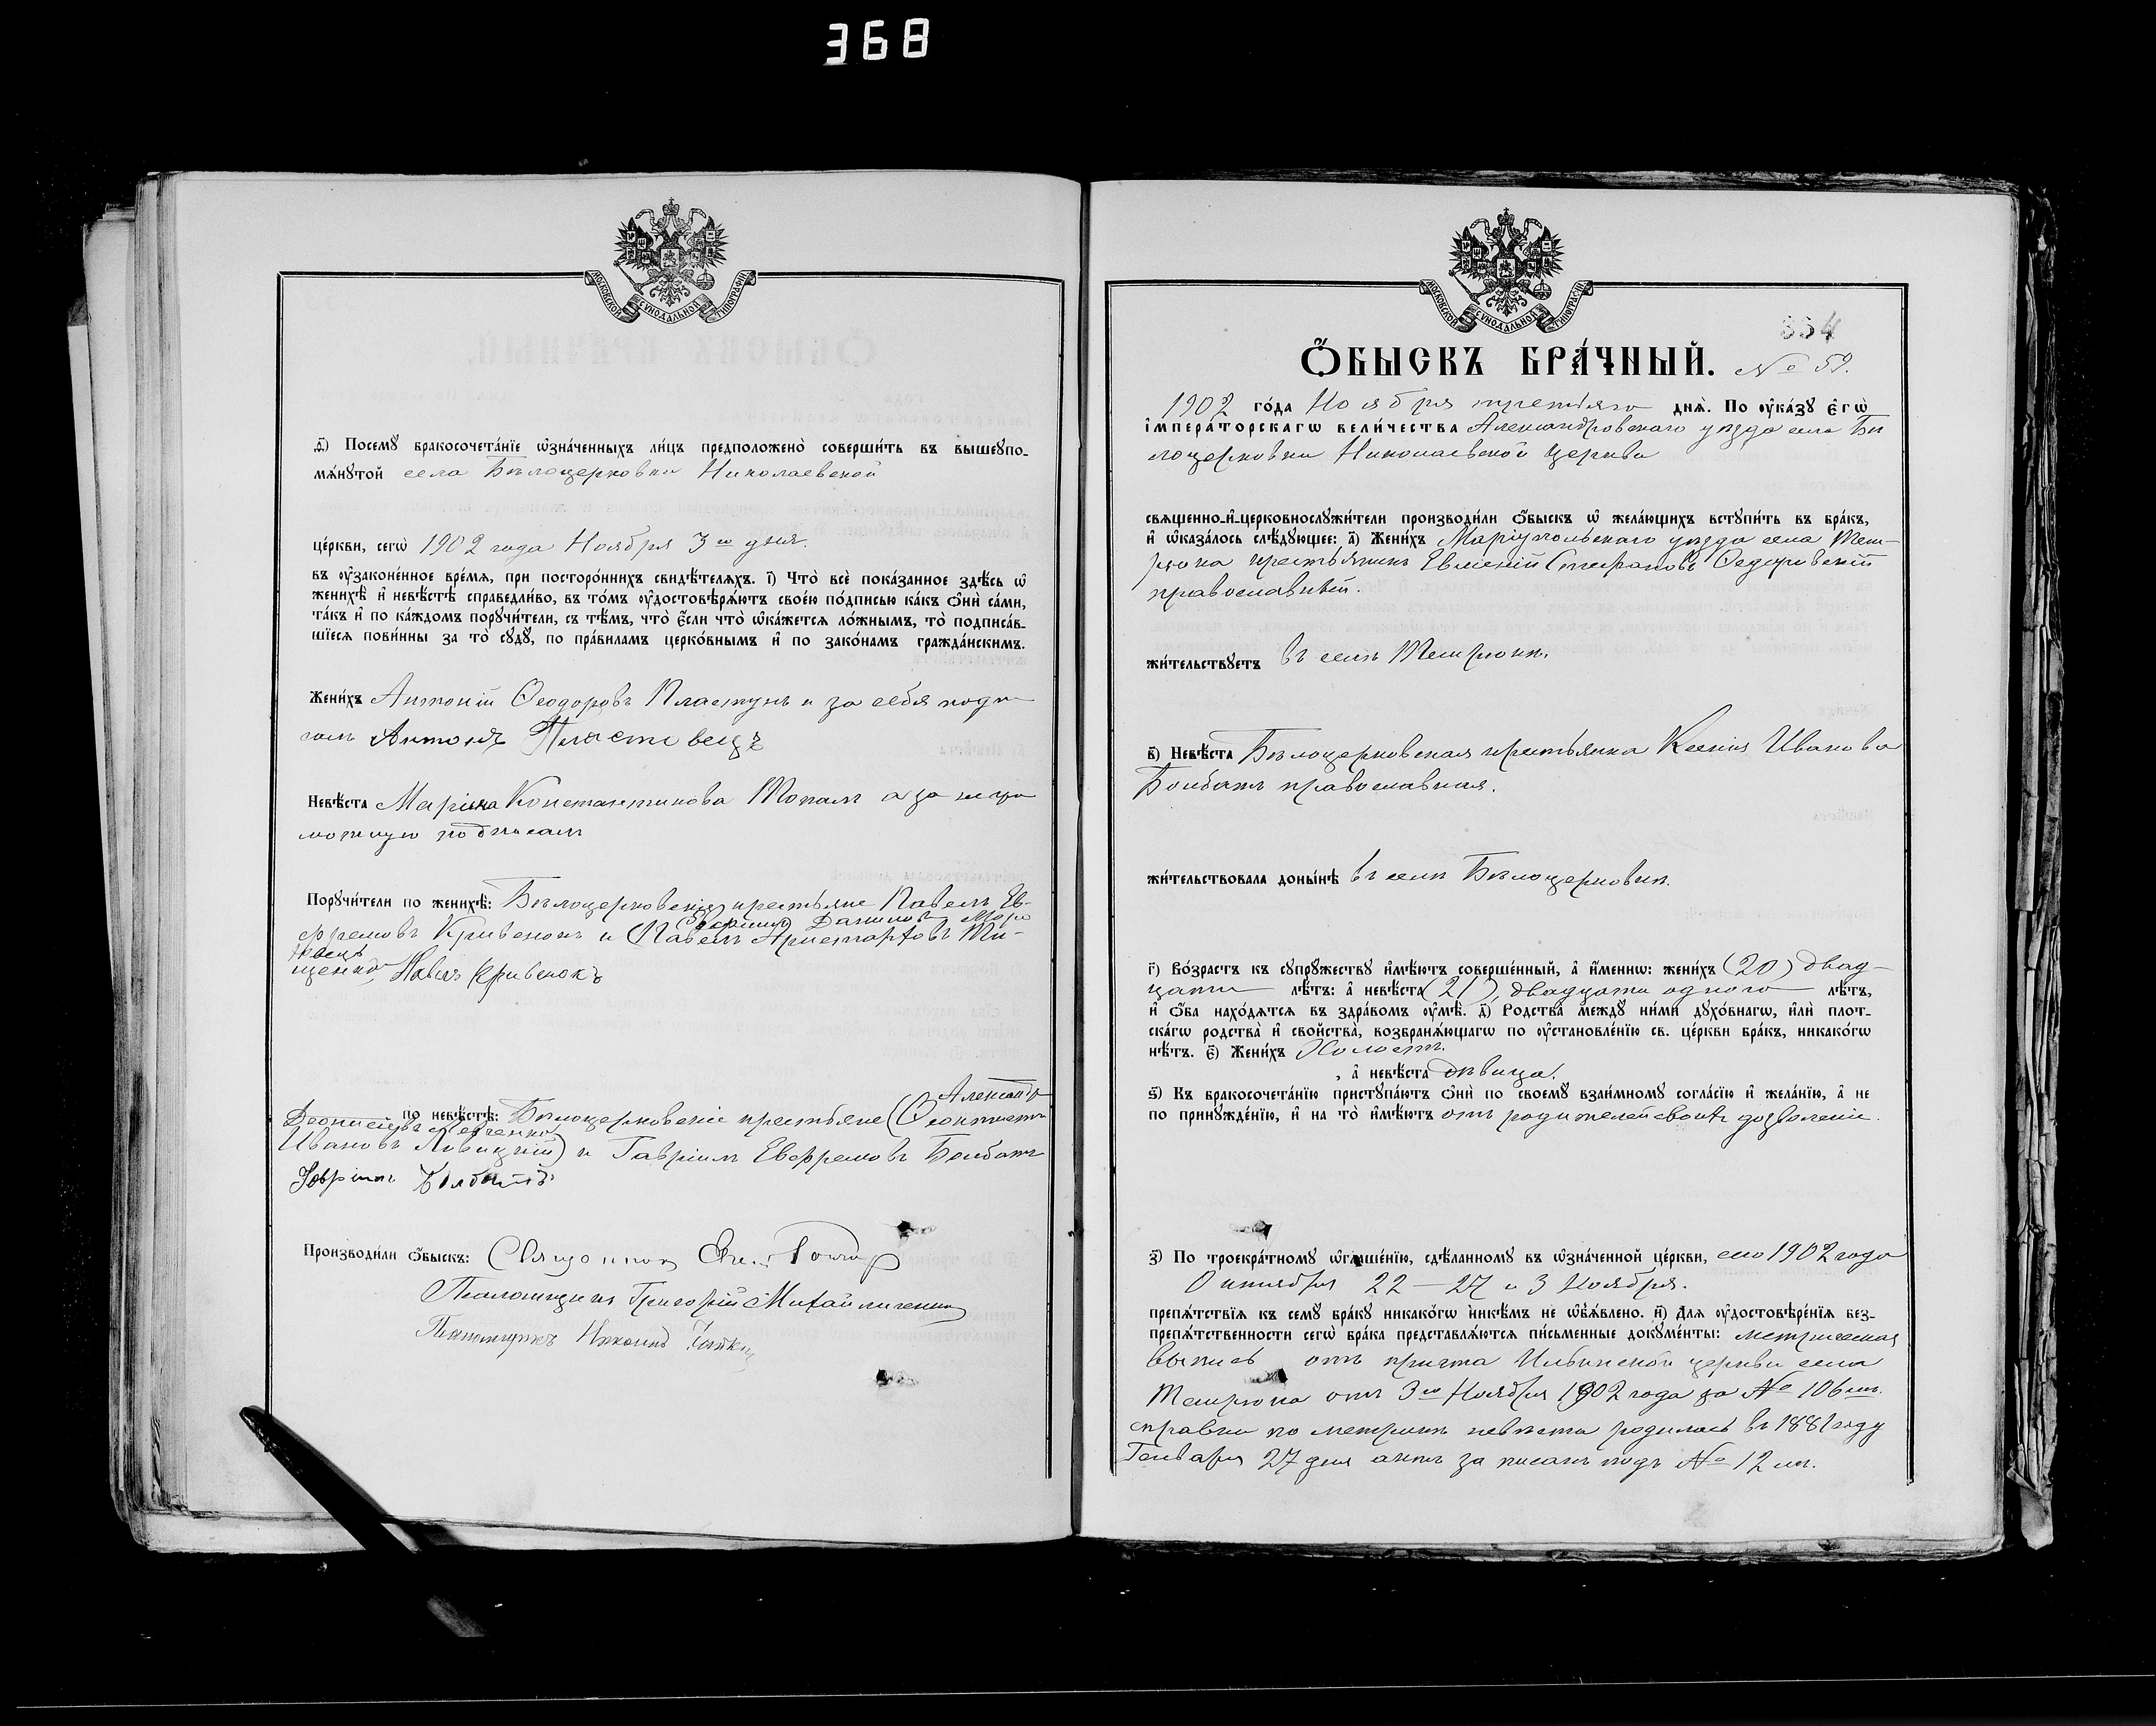 368
МОСКОВСКОЙ СѴНОДАЛЬНОЙ ТИПОГРАФІИ
ѳ) Посему̀ бракосочета́нїе ѡзна́ченныхъ ли́цъ предположено̀ соверши́ть въ вышеупо-
мѧ́нутой села Бѣлоцерковки Николаевской
це́ркви, сегѡ̀ 1902 года Ноября 3го дня.
въ ѹзаконе́нное вре́мѧ, при посторо́ннихъ свидѣ́телѧхъ. і) Что̀ всѐ пока́занное здѣ́сь ѡ
женихѣ̀ и҆ невѣ́стѣ справедли́во, въ то́мъ ѹдостовѣрѧ́ютъ свое́ю по́дписью ка́къ ѻнѝ са́ми,
та́къ и҆ по ка́ждомъ поручи́тели, съ тѣ́мъ, что̀ є҆́сли что̀ ѡка́жетсѧ ло́жнымъ, то̀ подписа́в-
шїесѧ пови́нны за то̀ суду̀, по пра́виламъ церко́внымъ и҆ по зако́намъ гражда́нскимъ.
Жени́хъ Антоній Ѳеодоровъ Пластунъ и за себя подпи
салъ Антонъ
Невѣ́ста Марина Константинова Топалъ а за негра
мотную подписалъ
Поручи́тели по женихѣ̀: Бѣлоцерковскіе крестьяне Павелъ Еѵ-
фремовъ Кривенокъ и (Павелъ Аристарховъ Ми-
щенко) Павелъ Кривенокъ
Александръ
по невѣ́стѣ: Бѣлоцерковскіе крестьяне (Ѳеоктистъ
Ивановъ Левицкій) и Гавріилъ Евфремовъ Болбатъ
Гавріилъ Болбатъ
Произво́дили ѻ҆́быскъ: Священникъ
Псаломщикъ Григорій Михайличенко
МОСКОВСКОЙ СѴНОДАЛЬНОЙ ТИПОГРАФІИ
334
Ѻ҆́БЫСКЪ БРА́ЧНЫЙ. № 59.
1902 го́да Ноября третьяго днѧ̀. По ѹка́зу Є҆гѡ̀
І҆мпера́торскагѡ вели́чества Александровскаго уѣзда села Бѣ
лоцерковки Николаевской церкви
свѧщенно-и҆-церковнослужи́тели производи́ли ѻ҆́быскъ ѡ жела́ющихъ вступи́ть въ бра́къ,
и҆ ѡказа́лось слѣ́дующее: а) Жени́хъ Маріупольскаго уѣзда села Тем-
рюка крестьянинъ Евменій Стефановъ Ѳедоровскій
православный.
жи́тельствуетъ въ селѣ Темрюкѣ.
в) Невѣ́ста Бѣлоцерковская крестьянка Ксенія Иванова
Болбатъ православная.
жи́тельствовала доны́нѣ въ селѣ Бѣлоцерковкѣ.
г) Во́зрастъ къ супру́жеству и҆мѣ́ютъ соверше́нный, а҆ и҆́меннѡ: жени́хъ (20) двад-
цати лѣ́тъ: а҆ невѣ́ста (21) двадцати одного лѣ́тъ,
и҆ ѻ҆́ба нахо́дѧтсѧ въ здра́вомъ ѹмѣ̀. д) Родства̀ между ни́ми духо́внагѡ, и҆лѝ плот-
ска́гѡ родства̀ и҆ сво́йства, возбранѧ́ющагѡ по ѹстановле́нїю св. це́ркви бра́къ, никако́гѡ
нѣ́тъ. є) Жени́хъ Холостъ.
, а҆ невѣ́ста дѣвица.
ѕ) Къ бракосочета́нїю приступа́ютъ ѻнѝ по своему̀ взаи́мному согла́сїю и҆ жела́нїю, а҆ не
по принужде́нїю, и҆ на то̀ и҆мѣ́ютъ отъ родителей своихъ дозволеніе.
з) По троекра́тному ѡглаше́нїю, сдѣ́ланному въ ѡзна́ченной це́ркви, сего 1902 года
Октября 22 — 27 и 3 Ноября.
препѧ́тствїѧ къ сему̀ бра́ку никако́гѡ никѣ́мъ не ѡб̾ѧ́влено. и) Длѧ ѹдостовѣре́нїѧ без-
препѧ́тственности сегѡ̀ бра́ка представлѧ́ютсѧ пи́сьменные докуме́нты: метрическая
выпись отъ причта Ильинской церкви села
Темрюка отъ 3го Ноября 1902 года за № 106 м.
справки по метрикѣ невѣста родилась въ 1881 году
Генваря 27 дня актъ записанъ подъ № 12 м.